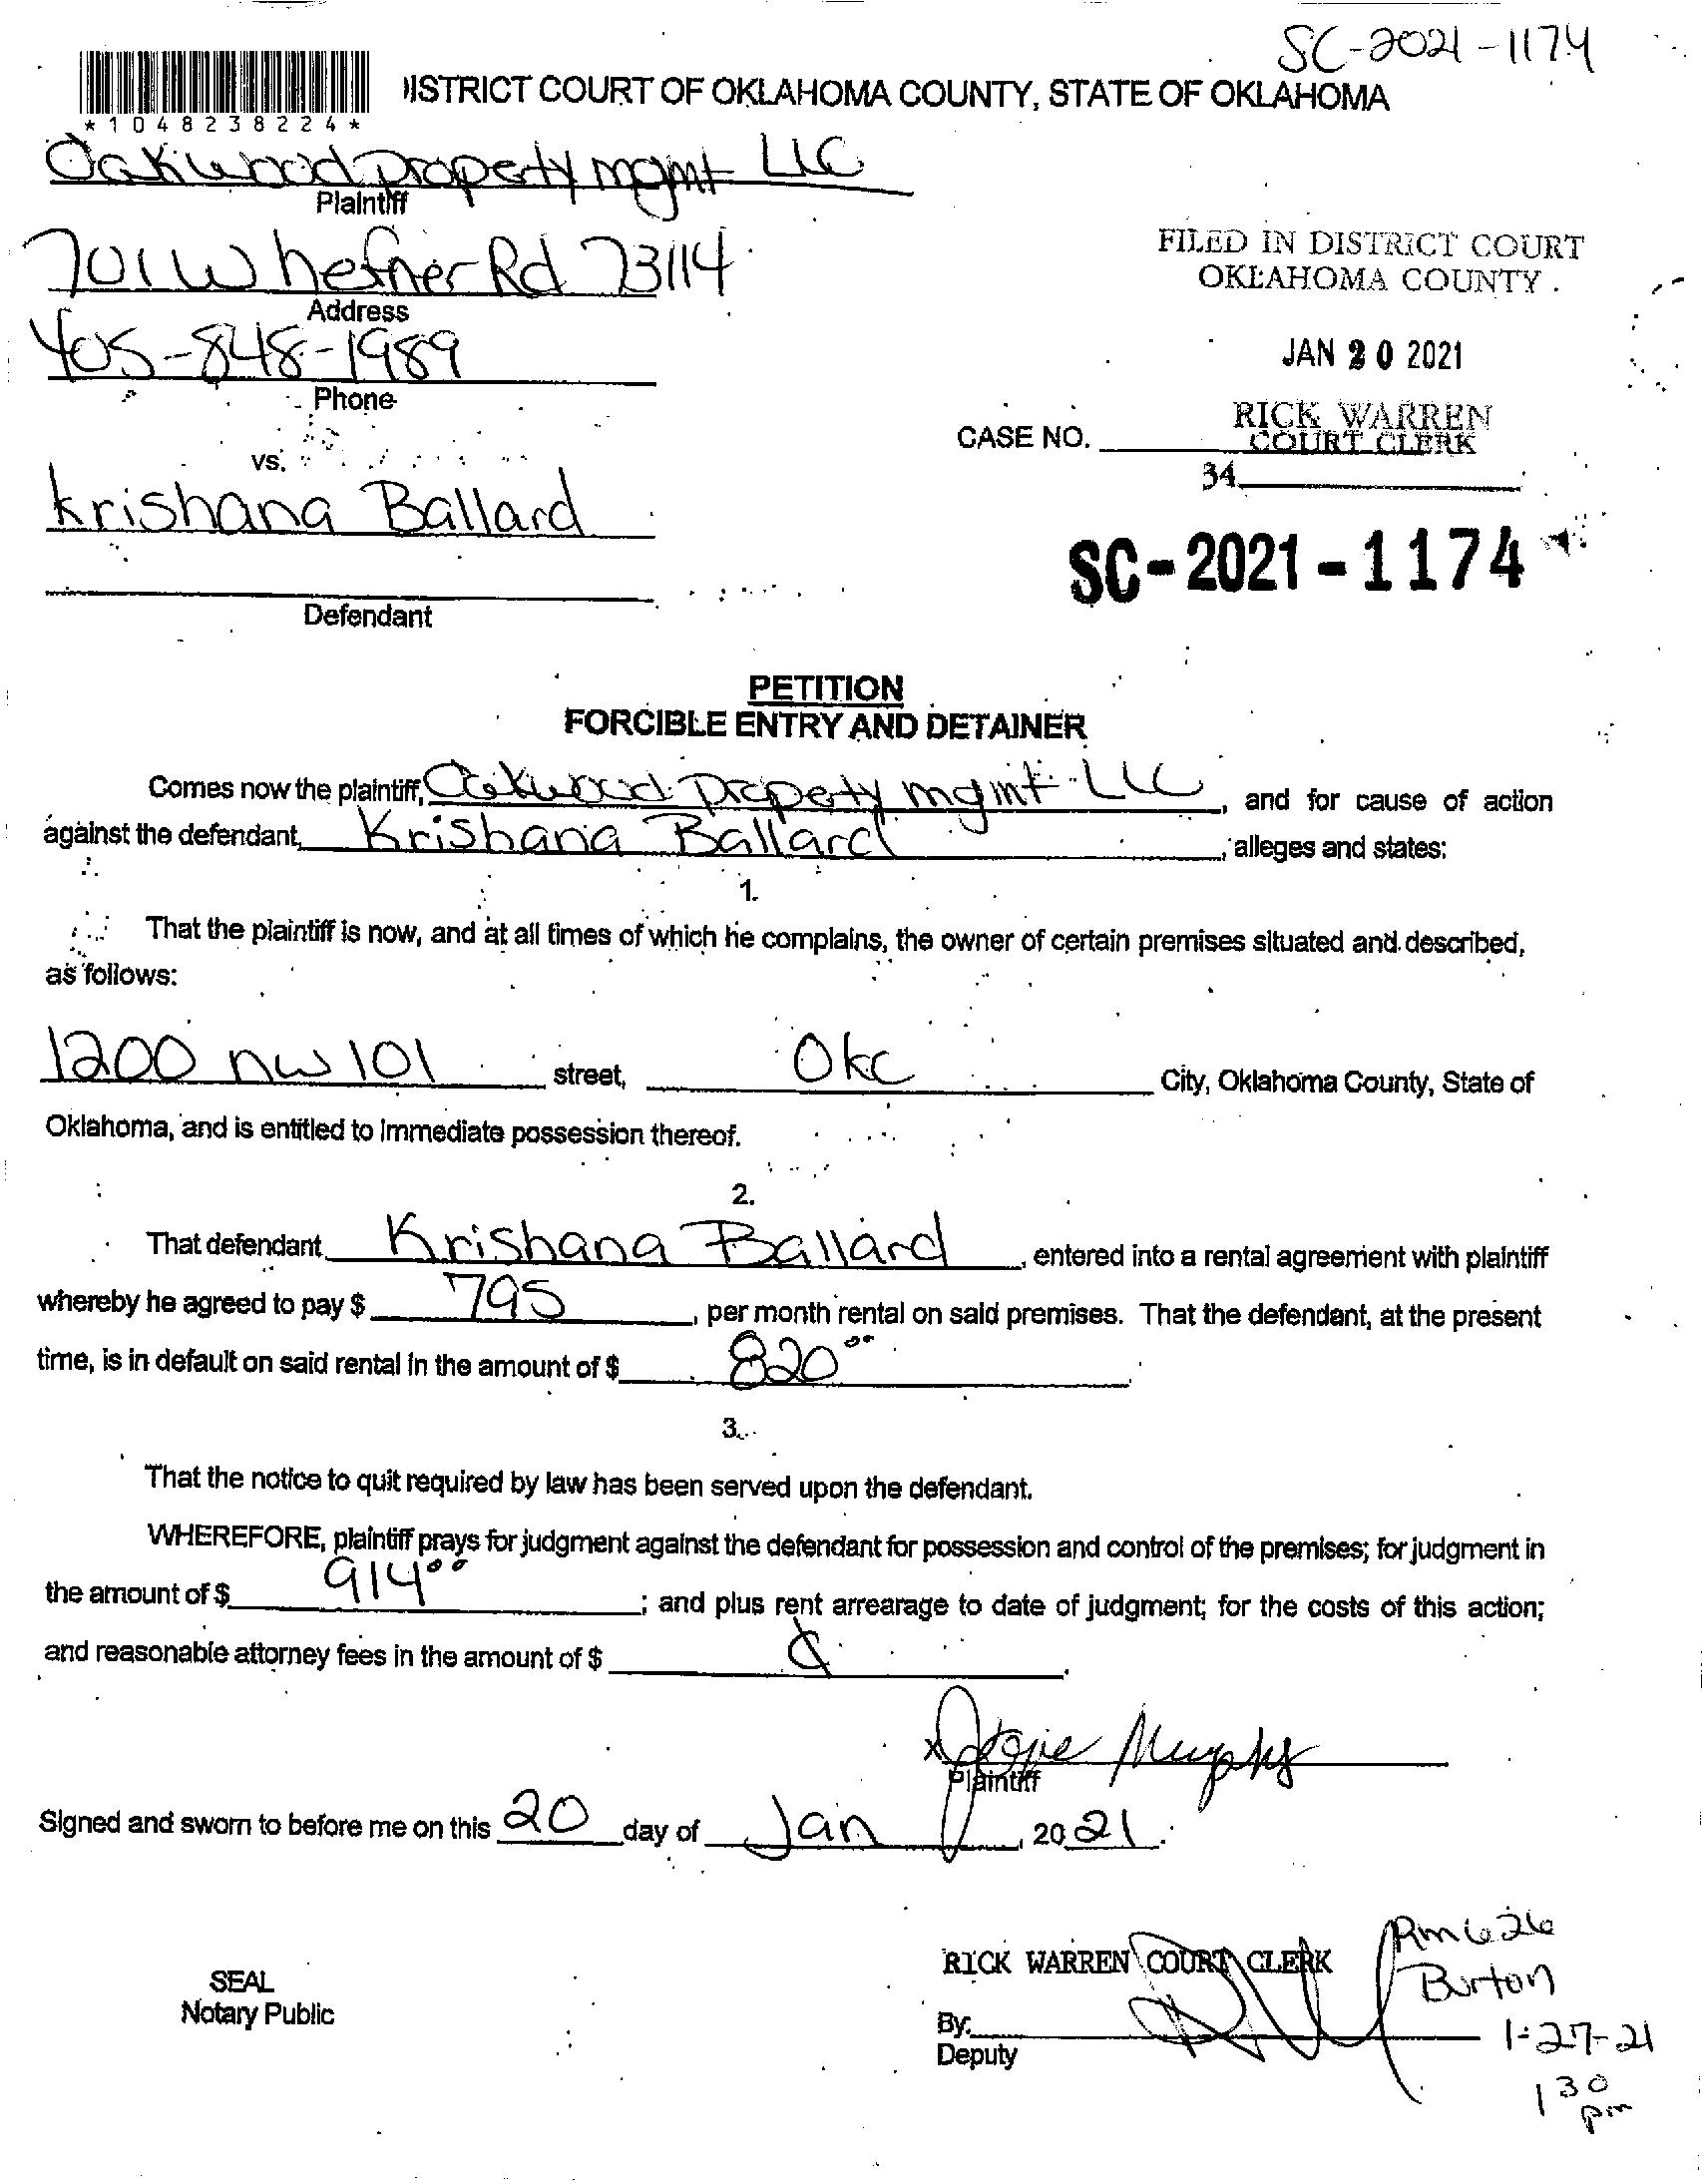 SC-2021-1174
ISTRICT COURT OF OKLAHOMA COUNTY, STATE OF OKLAHOMA
*1048238224*
Oakwood Property mgmt LLC
Plaintiff
701 W hefner Rd 73114
Address
405-848-1989
Phone
vs.
Krishana Ballard
Defendant
FILED IN DISTRICT COURT
OKLAHOMA COUNTY
JAN 20 2021
RICK WARREN
COURT CLERK
CASE NO.
34
SC-2021-1174
PETITION
FORCIBLE ENTRY AND DETAINER
Comes now the plaintiff, Oakwood Property mgmt LLC, and for cause of action
against the defendant, Krishana Ballard, alleges and states:
1.
That the plaintiff is now, and at all times of which he complains, the owner of certain premises situated and described,
as follows:
1200 nw 101 street, Okc City, Oklahoma County, State of
Oklahoma, and is entitled to immediate possession thereof.
2.
That defendant Krishana Ballard, entered into a rental agreement with plaintiff
whereby he agreed to pay $ 795, per month rental on said premises. That the defendant, at the present
time, is in default on said rental in the amount of $ 820.00.
3.
That the notice to quit required by law has been served upon the defendant.
WHEREFORE, plaintiff prays for judgment against the defendant for possession and control of the premises; for judgment in
the amount of $ 914.00; and plus rent arrearage to date of judgment; for the costs of this action;
and reasonable attorney fees in the amount of $
x Murphy
Plaintiff
Signed and sworn to before me on this 20 day of Jan, 2021.
SEAL
Notary Public
RICK WARREN COURT CLERK
By:
Deputy
Rm 626
Burton
1-27-21
1 30
pm